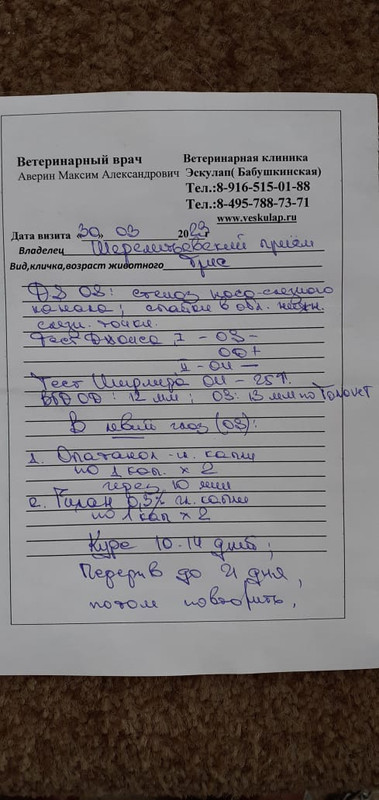 Ветеринарный врач
Аверин Максим Александрович
Ветеринарная клиника
Эскулап( Бабушкинская)
Тел.:8-916-515-01-88
Тел.:8-495-788-73-71
www.veskulap.ru
Дата визита «30» 03 2023г
Владелец Шереметьевский приём
Вид,кличка,возраст животного
DS OS: стеноз носо-слезного
канала; в обл. нижн.
слезн. точки.
Тест Джонса I - OS -
OD +
II - OU —
Тест Ширмера OU - 25
ВГД OD: 12 мм; OS: 13 мм по Tonovet
В левый глаз (OS):
1. Опатанол - гл. капли
по 1 кап. x 2
через 10 мин
2. 0,3% гл. капли
по 1 кап x 2
Курс 10-14 дней;
Перерыв до 21 дня,
потом повторить,